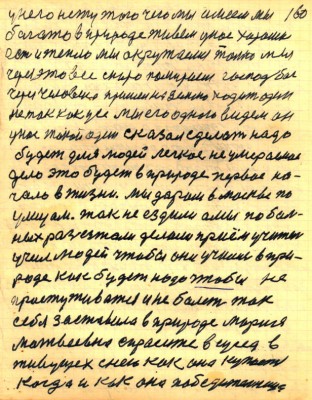 у него нету того чего мы имеем мы 160
богато в природе живем у нас хороше
ест и тепло мы окружаем только мы
через это все скоро помираем господь бог
через человека пришел на землю ходит один
не так как уже мы его одного видем он
у нас такой один сказал сделат надо
будет для людей легкое не умераемое
дело это будет в природе первое на-
чало в жизни. мы даром в москве по
улицам. так не ездием а мы по бол-
ных разезжали делали приём учители
учил людей чтобы они учились в при-
роде как будет надо чтобы не
простуживатся и не болет так
себя заставила в природе Мария
Матвеевна спросите в неё в
живущех снею как она купает
когда и как она победительница